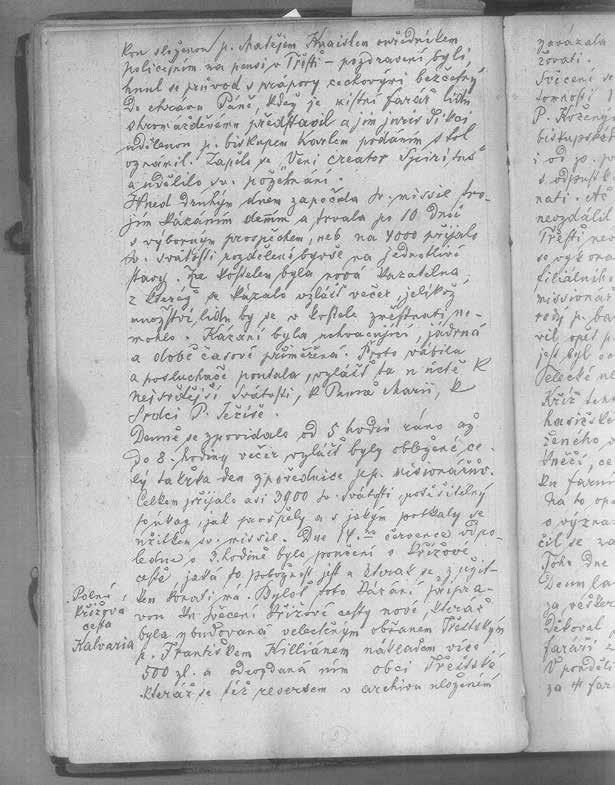 kou složenou p. Matějem Knaislem ouředníkem
policejním na pensi v Třešti – pozdravení byli
hnul se průvod s prápory cechovými bezčetný
Do chrámu Páně, kdež je místní farář lidu
shromážděnému představil a jim jurisdikci
udělenou p. biskupem Karlem podáním štol
oznámil. Zapělo se Veni creator Spiritus
a udělilo sv. požehnání.
Hned druhým dnem započala sv. missie tro-
jím kázáním denním a trvala po 10 dnů
s výborným prospěchem, neb na 4000 přijalo
sv. svátosti rozděleni byvše na jednotlivé
stavy. Za kostelem byla nová kazatelna
z kteréž se kázalo zvlášť večer, jelikož
množství lidu by se v kostele směstnati ne-
mohlo. Kázání byla uchvacující, jádrná
a době časové přiměřená. Proto vábila
a posluchače poutala, zvlášť ta o úctě k
nejsvětější Svátosti, k Panně Marii, k
Srdci P. Ježíše.
Denně se zpovídalo od 5 hodin ráno až
do 8. hodiny večer, zvlášť byly obležené ce-
lý takřka den zpovědnice pp. missionářů.
Celkem přijalo asi 3900 sv. svátosti, potěšitelný
to úkaz, jak prospěly a s jakým potkaly se
užitkem sv. missie. Dne 14.ho července odpo-
ledne o 3. hodině bylo poučení o křížové
cestě, jaká to pobožnost jest a kterak se s užit-
kem konati má. Byloť toto kázání přípra-
vou ku svěcení křížové cesty nové, kteráž
byla vybudovaná velectným občanem Třešťským
p. Františkem Killiánem nákladem více
500 zl. a odevzdaná jím obci Třešťské
kteráž se též reversem v archivu uloženém
Polní
křížová
cesta
Kalvaria
zavázala
žovati.
Svěcení se
biskupské
i od
s odpustk
nati.
neozdálil
Třešti
se vykona
filiálníh
missionář
vil opět p
jest byl
Kříž
hasičsk
ženého
ku farní
na to op
o význa
čil se
Toho dne
Deum la
za vešker
Děkoval
faráři
V pondělí
za